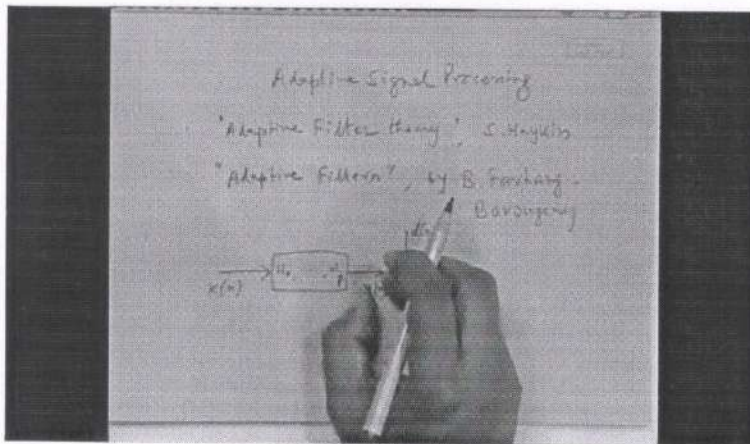 Adaptive Signal Processing
"Adaptive Filter theory", S. Haykin
"Adaptive Filters", by B. Farhang-
Boroujeny
x(n)